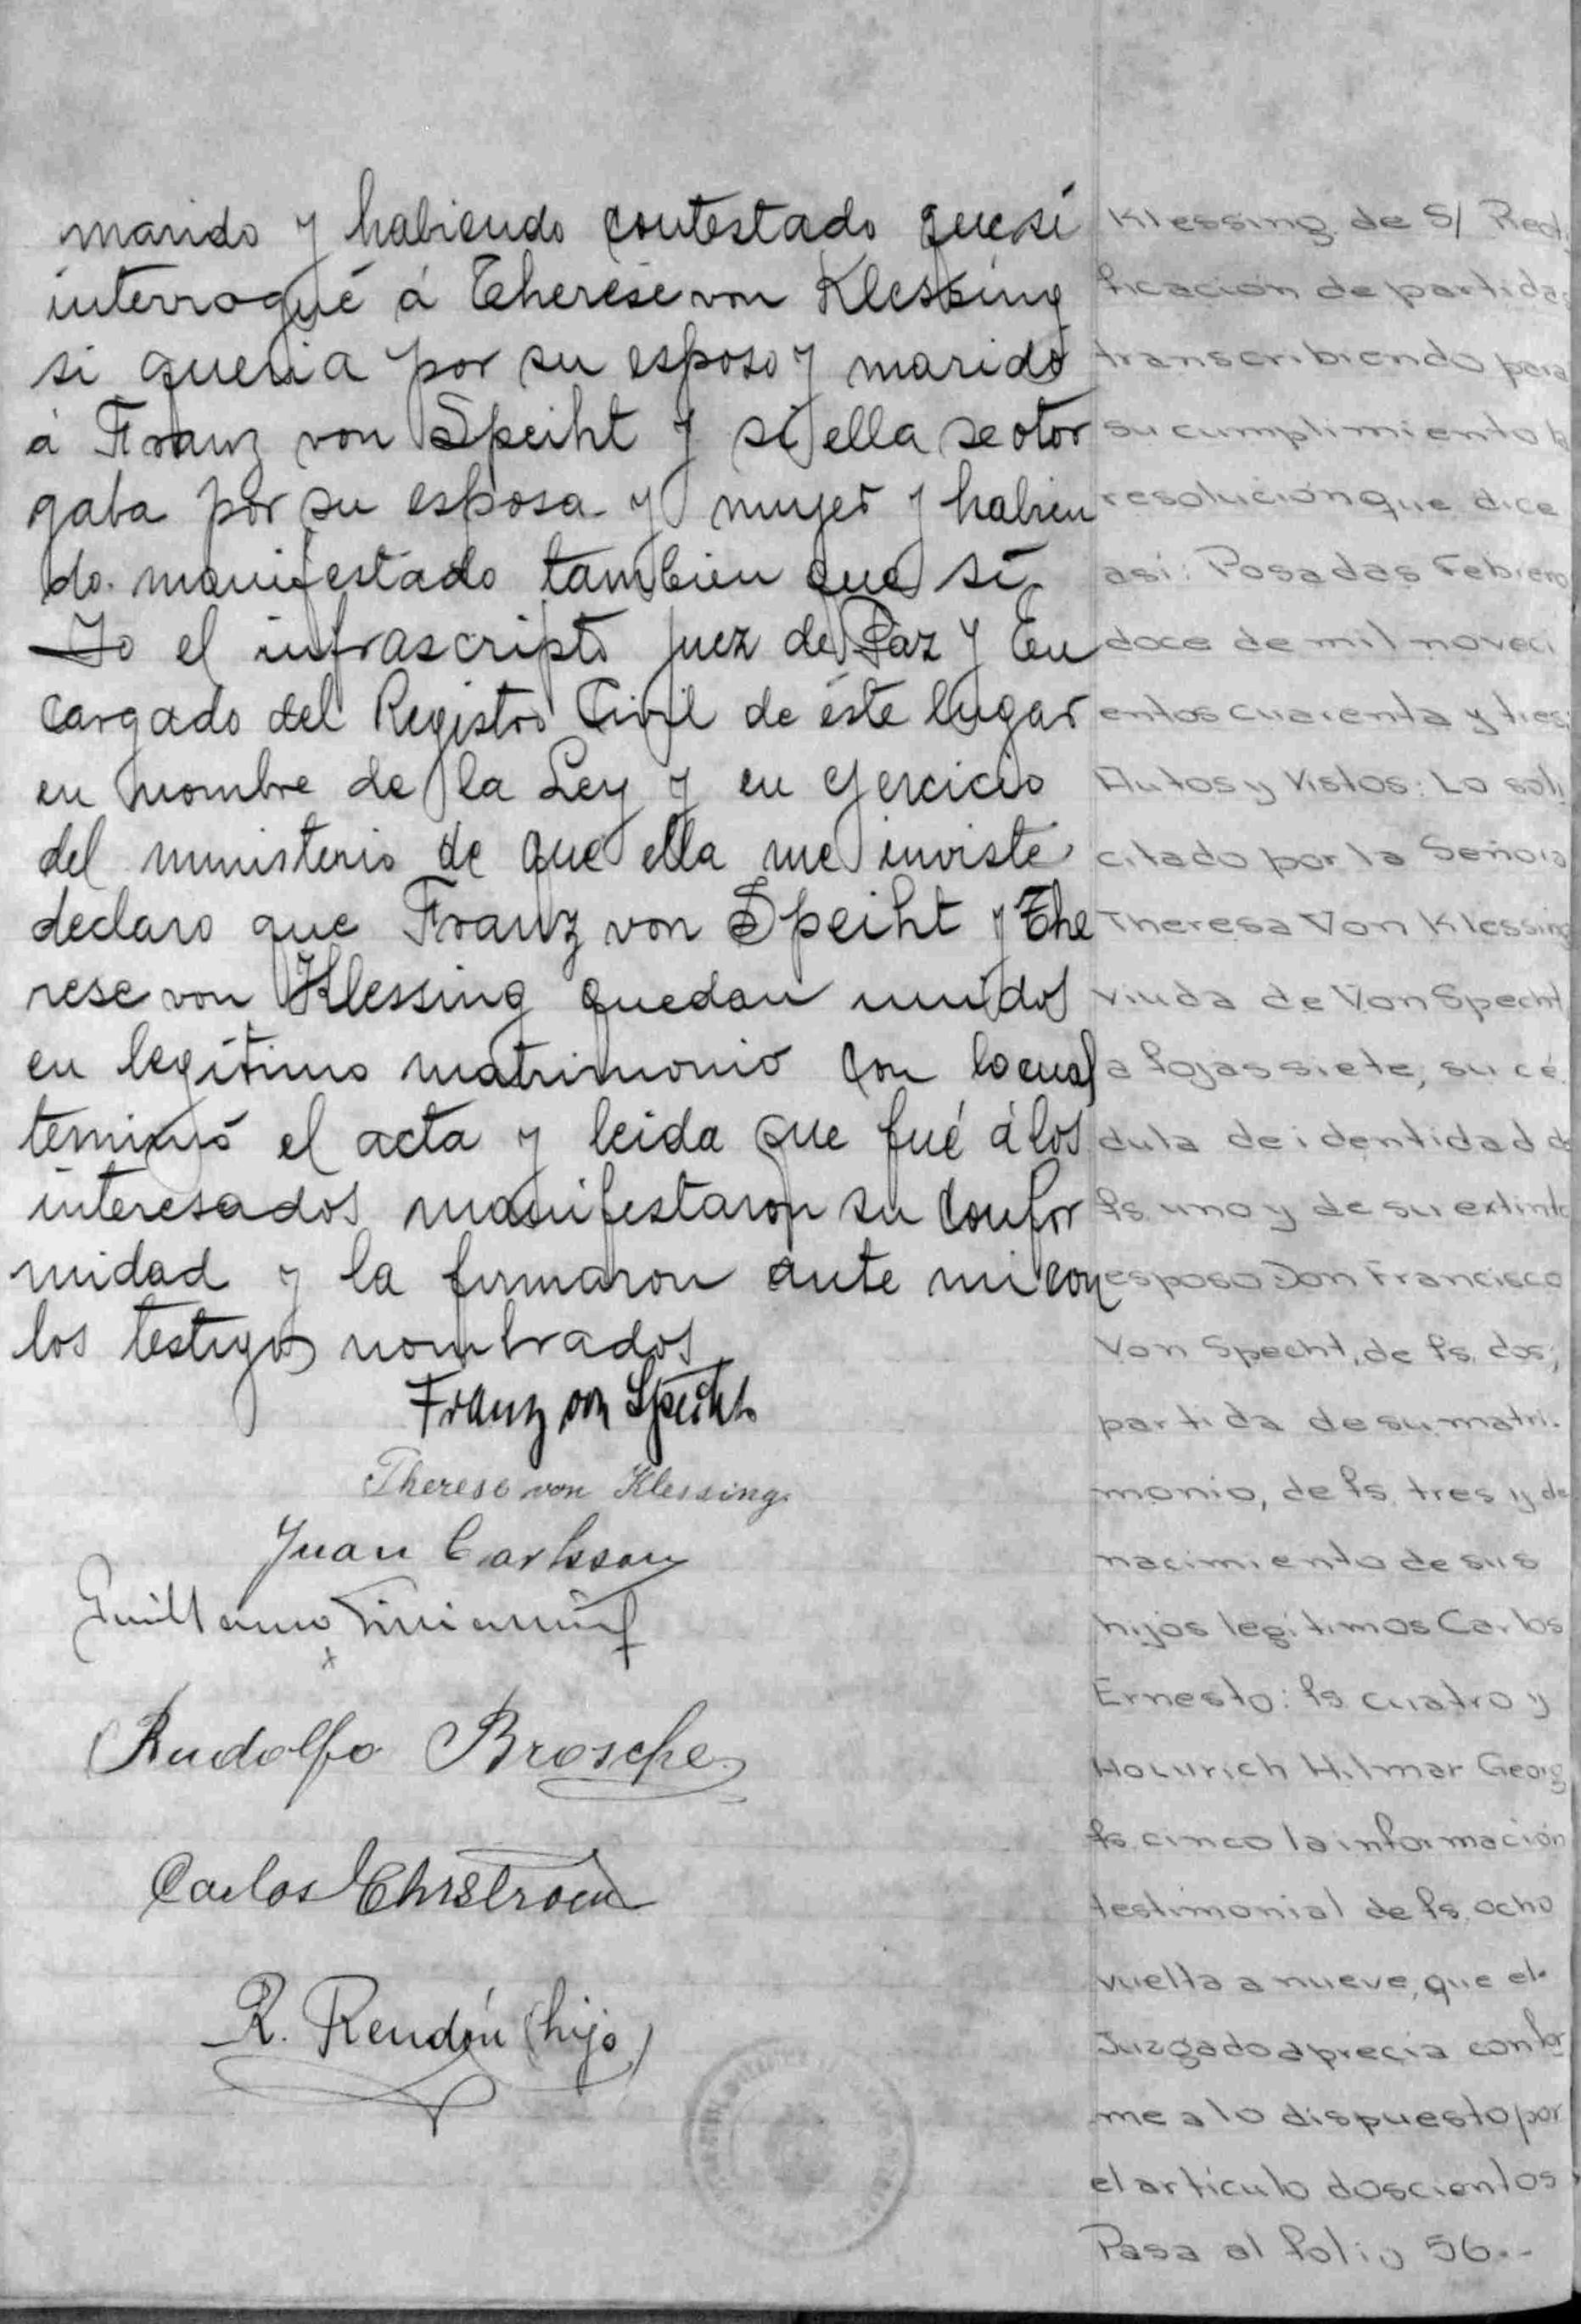 marido y habiendo contestado que si
interrogué á Therese von Klessing
si queria por su esposo y marido
á Franz von Speiht y si ella se otor
gaba por su esposa y mujer y habien
do manifestado tambien que si.
Yo el infrascripto Juez de Paz y En
cargado del Registro Civil de éste lugar
en nombre de la Ley y en ejercicio
del ministerio de que ella me inviste
declaro que Franz von Speiht y The
rese von Klessing quedan unidos
en legítimo matrimonio con lo cual
teminó el acta y leida que fué á los
interesados manifestaron su confor
midad y la firmaron ante mi con
los testigos nombrados
Franz von Specht
Therese von Klessing
Juan Carlsson
Guillermo
Rudolfo Brosche
Carlos Ehrström
R. Rendón (hijo)
Klessing de S/ Recti
ficación de partidas
transcribiendo para
su cumplimiento la
resolución que dice
asi: Posadas Febrero
doce de mil noveci
entos cuarenta y tres:
Autos y Vistos: Lo soli
citado por la Señora
Theresa Von Klessing
viuda de Von Specht
a fojas siete, su cé
dula de identidad de
fs. uno y de su extinto
esposo Don Francisco
Von Specht, de fs. dos;
partida de su matri-
monio, de fs. tres y de
nacimiento de sus
hijos legítimos Carlos
Ernesto: fs. cuatro y
Hilmar Georg
fs. cinco la información
testimonial de fs. ocho
vuelta a nueve, que el
Juzgado aprecia confor
me a lo dispuesto por
el artículo doscientos
Pasa al folio 56--